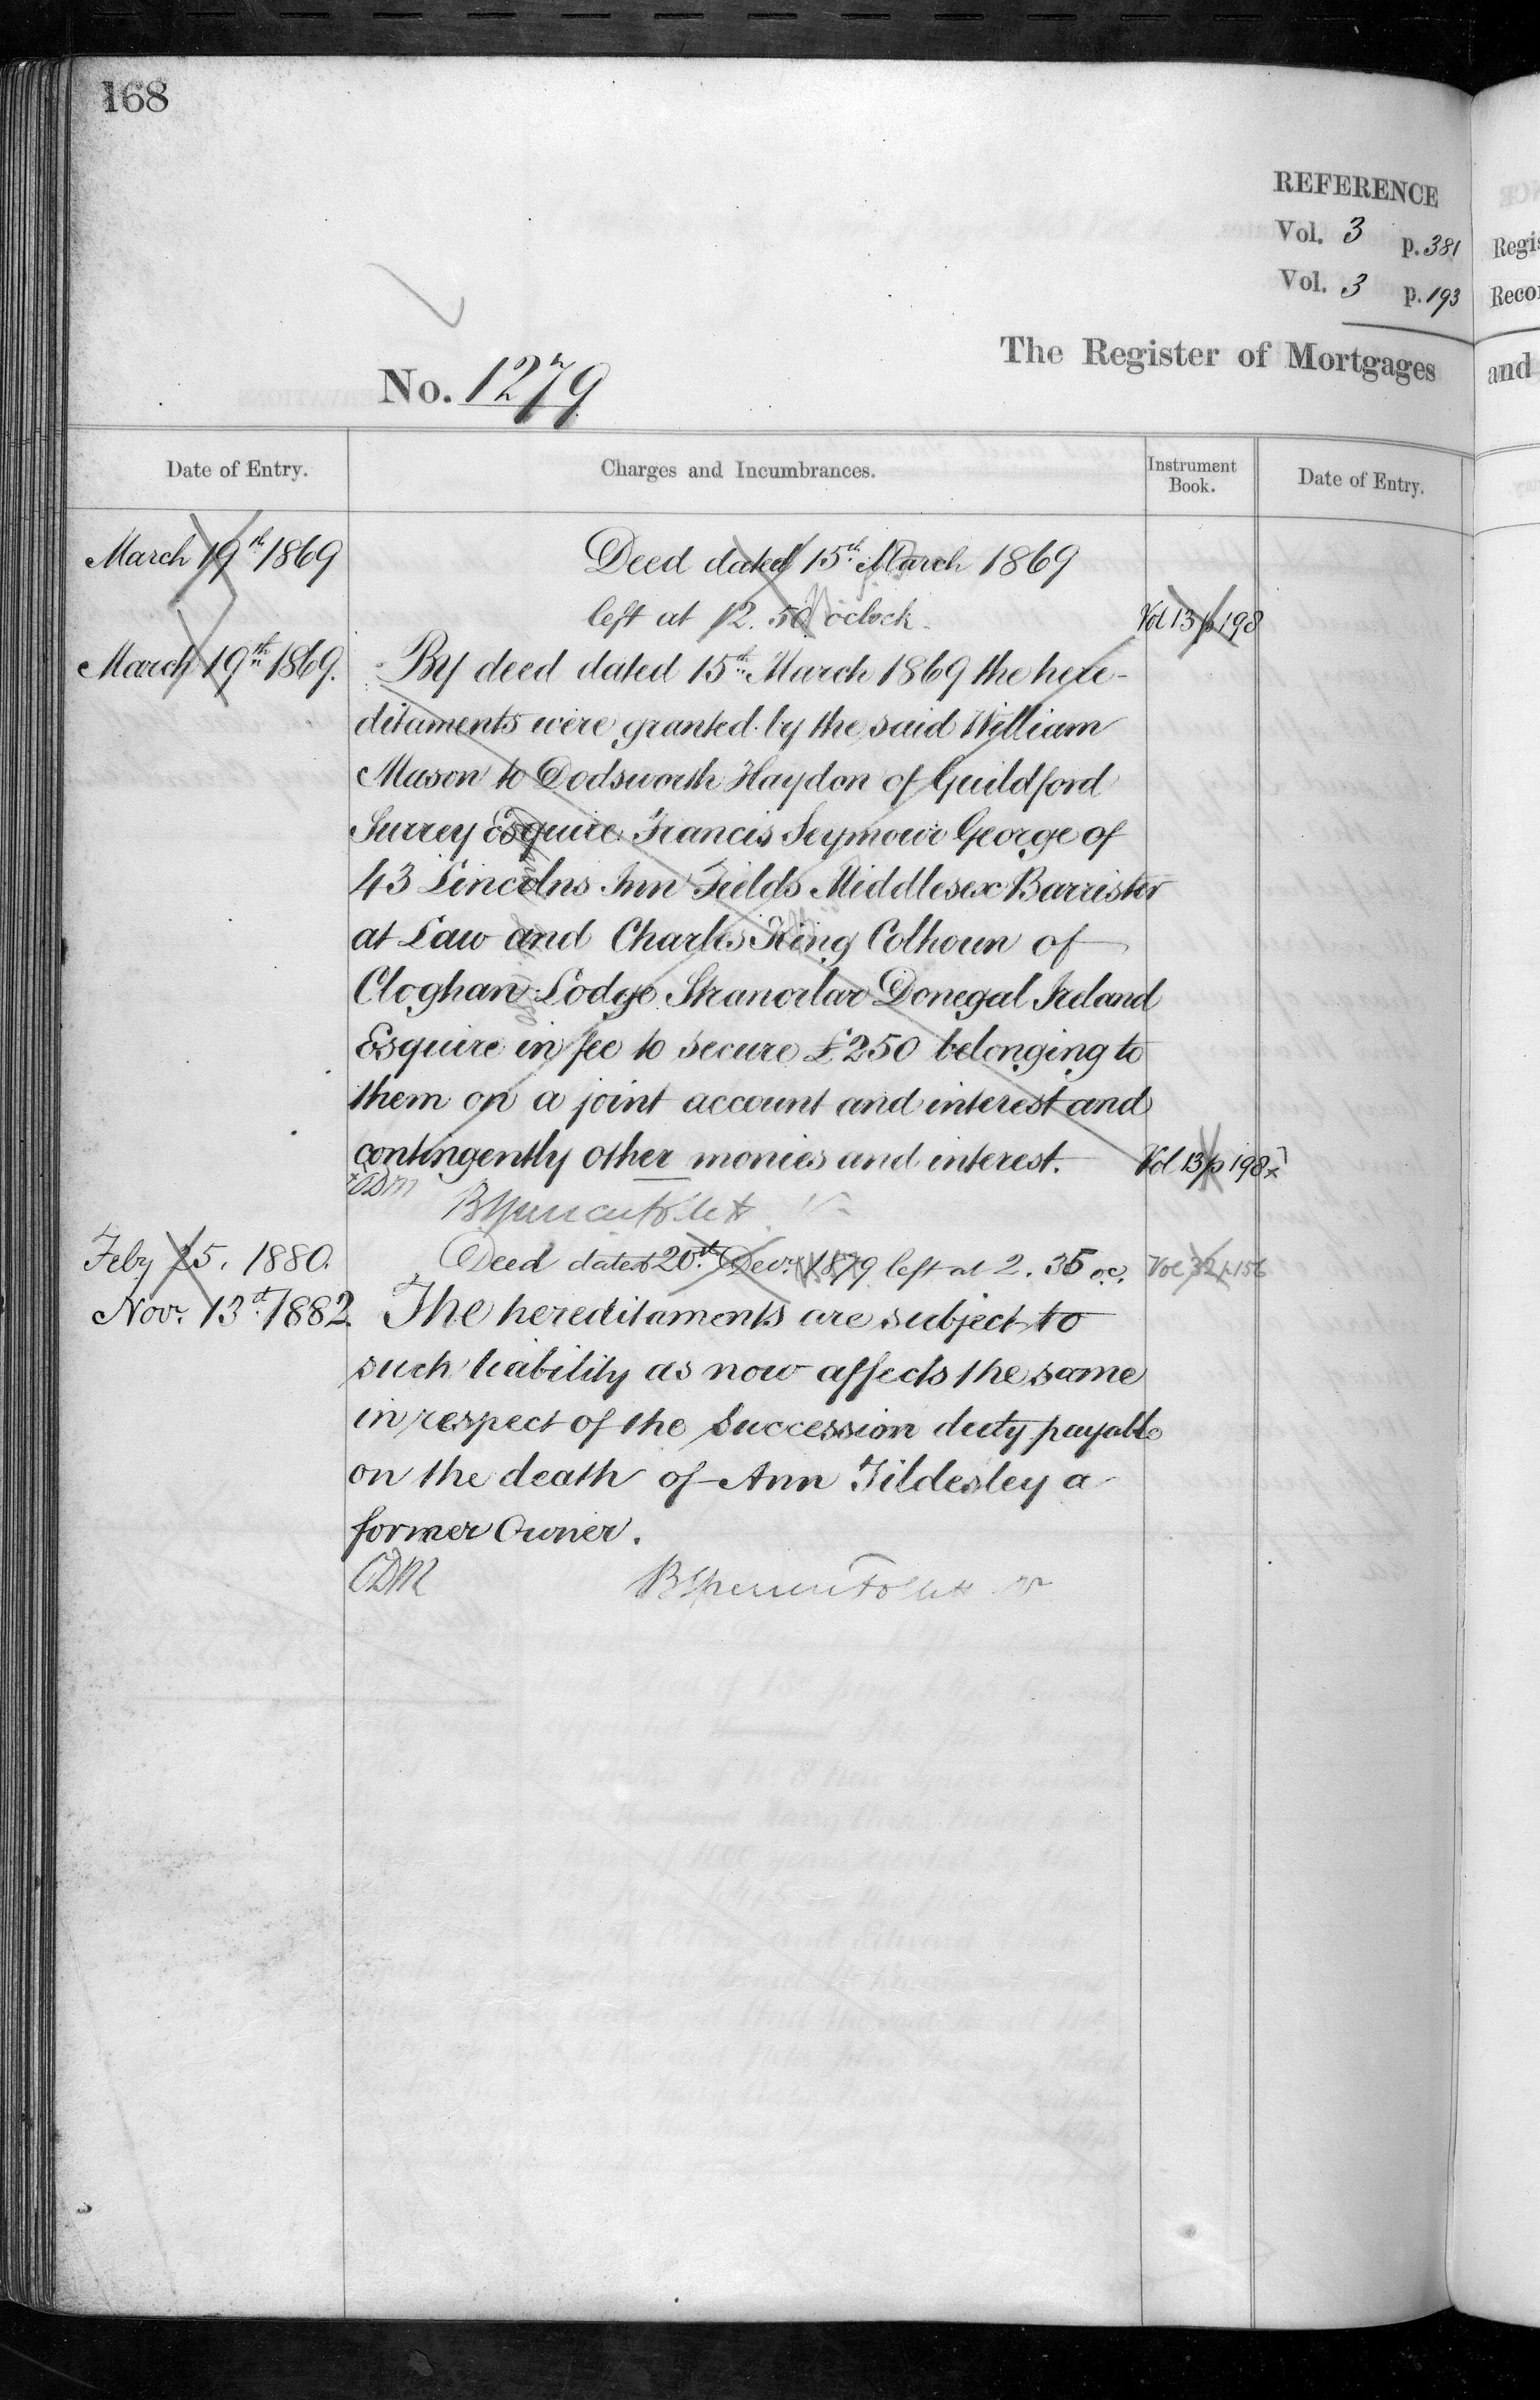 168
REFERENCE
Vol. 3 p. 381
Vol. 3 p. 193
The Register of Mortgages
No. 1279
Date of Entry.
Charges and Incumbrances.
Instrument Book.
Date of Entry.
March 19th 1869
Deed dated 15th March 1869
left at 12.50 oclock
Vol 13 p 198
March 19th 1869.
By deed dated 15th March 1869 the here-
ditaments were granted by the said William
Mason to Dodsworth Haydon of Guildford
Surrey Esquire Francis Seymour George of
43 Lincolns Inn Fields Middlesex Barrister
at Law and Charles King Colhoun of
Cloghan Lodge Stranorlar Donegal Ireland
Esquire in fee to secure £250 belonging to
them on a joint account and interest and
contingently other monies and interest.
Vol 13 p 198
CDM
Feby 25. 1880.
Deed dated 20th Decr. 1879 left at 2.35 oc.
Vol 32 p 156
Novr. 13th 1882
The hereditaments are subject to
such liability as now affects the same
in respect of the Succession duty payable
on the death of Ann Tildesley a
former Owner.
CDM
Regis
Recor
and